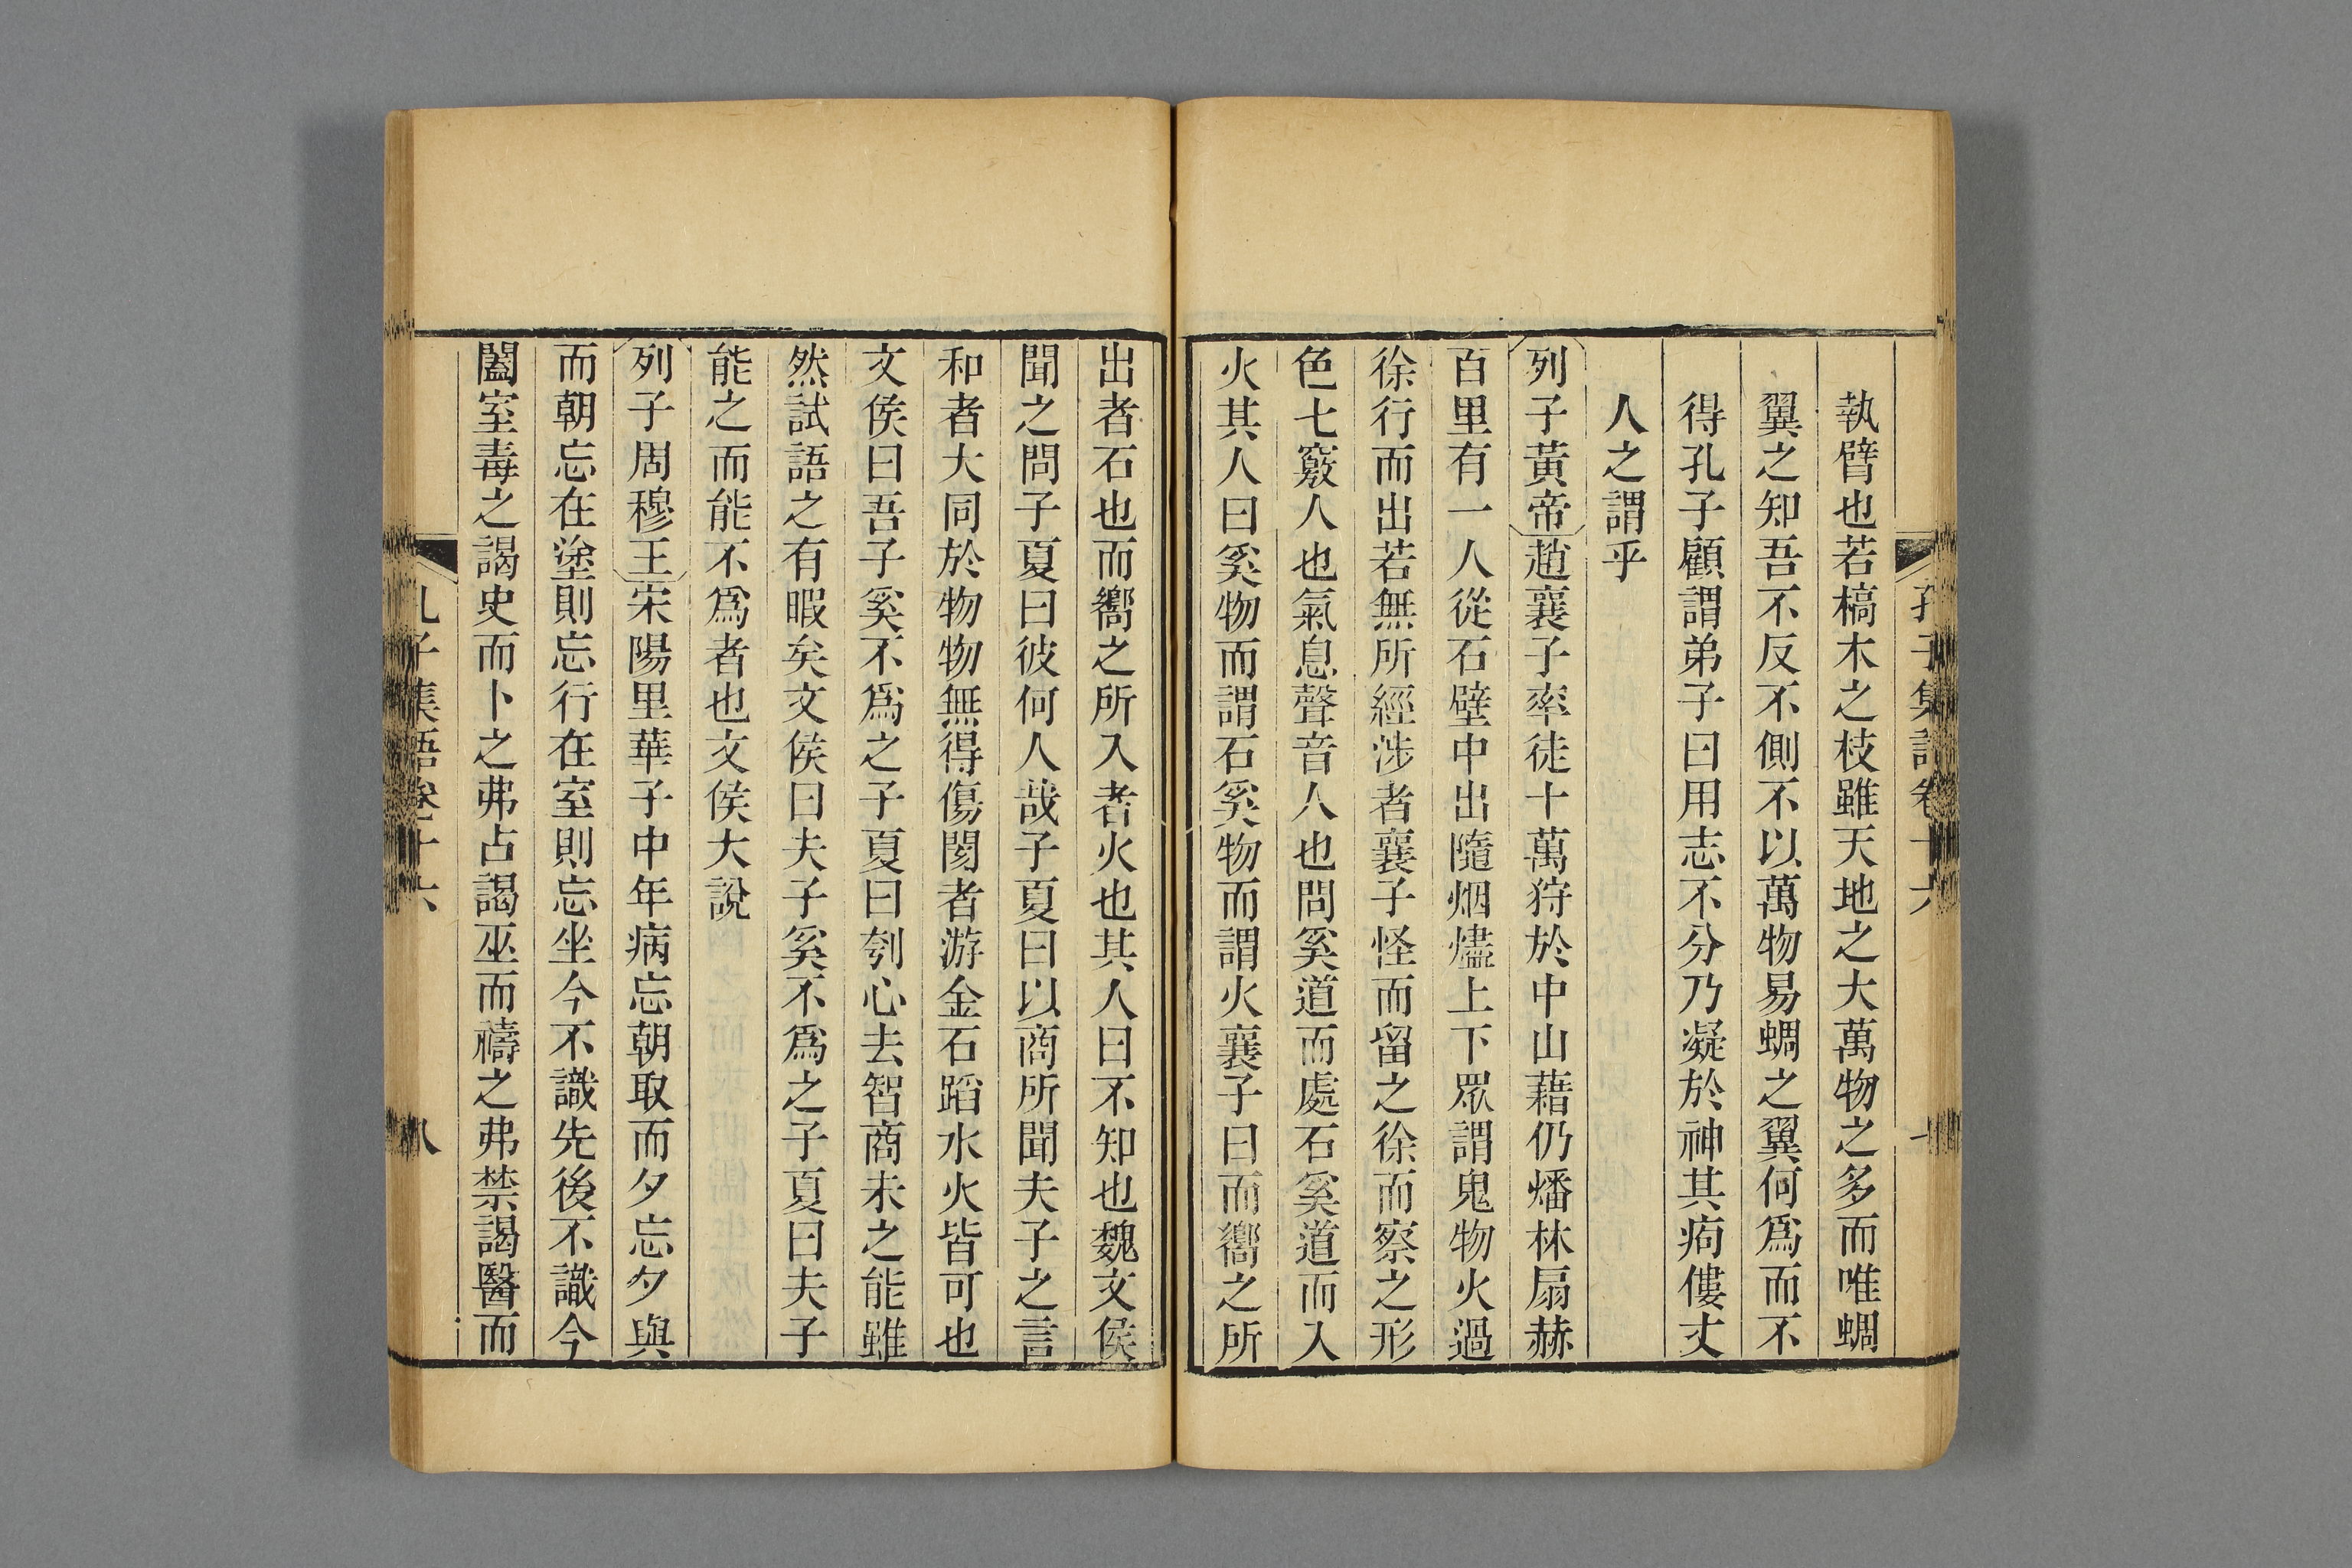 孔子集語卷十六
執臂也若槁木之枝雖天地之大萬物之多而唯蜩
翼之知吾不反不側不以萬物易蜩之翼何爲而不
得孔子顧謂弟子曰用志不分乃凝於神其痀僂丈
人之謂乎
列子黃帝趙襄子率徒十萬狩於中山藉仍燔林扇赫
百里有一人從石壁中出隨烟燼上下眾謂鬼物火過
徐行而出若無所經涉者襄子怪而留之徐而察之形
色七竅人也氣息聲音人也問奚道而處石奚道而入
火其人曰奚物而謂石奚物而謂火襄子曰而嚮之所
出者石也而嚮之所入者火也其人曰不知也魏文侯
聞之問子夏曰彼何人哉子夏曰以商所聞夫子之言
和者大同於物物無得傷閡者游金石蹈水火皆可也
文侯曰吾子奚不爲之子夏曰刳心去智商未之能雖
然試語之有暇矣文侯曰夫子奚不爲之子夏曰夫子
能之而能不爲者也文侯大說
列子周穆王宋陽里華子中年病忘朝取而夕忘夕與
而朝忘在塗則忘行在室則忘坐今不識先後不識今
闔室毒之謁史而卜之弗占謁巫而禱之弗禁謁醫而
孔子集語卷十六
八